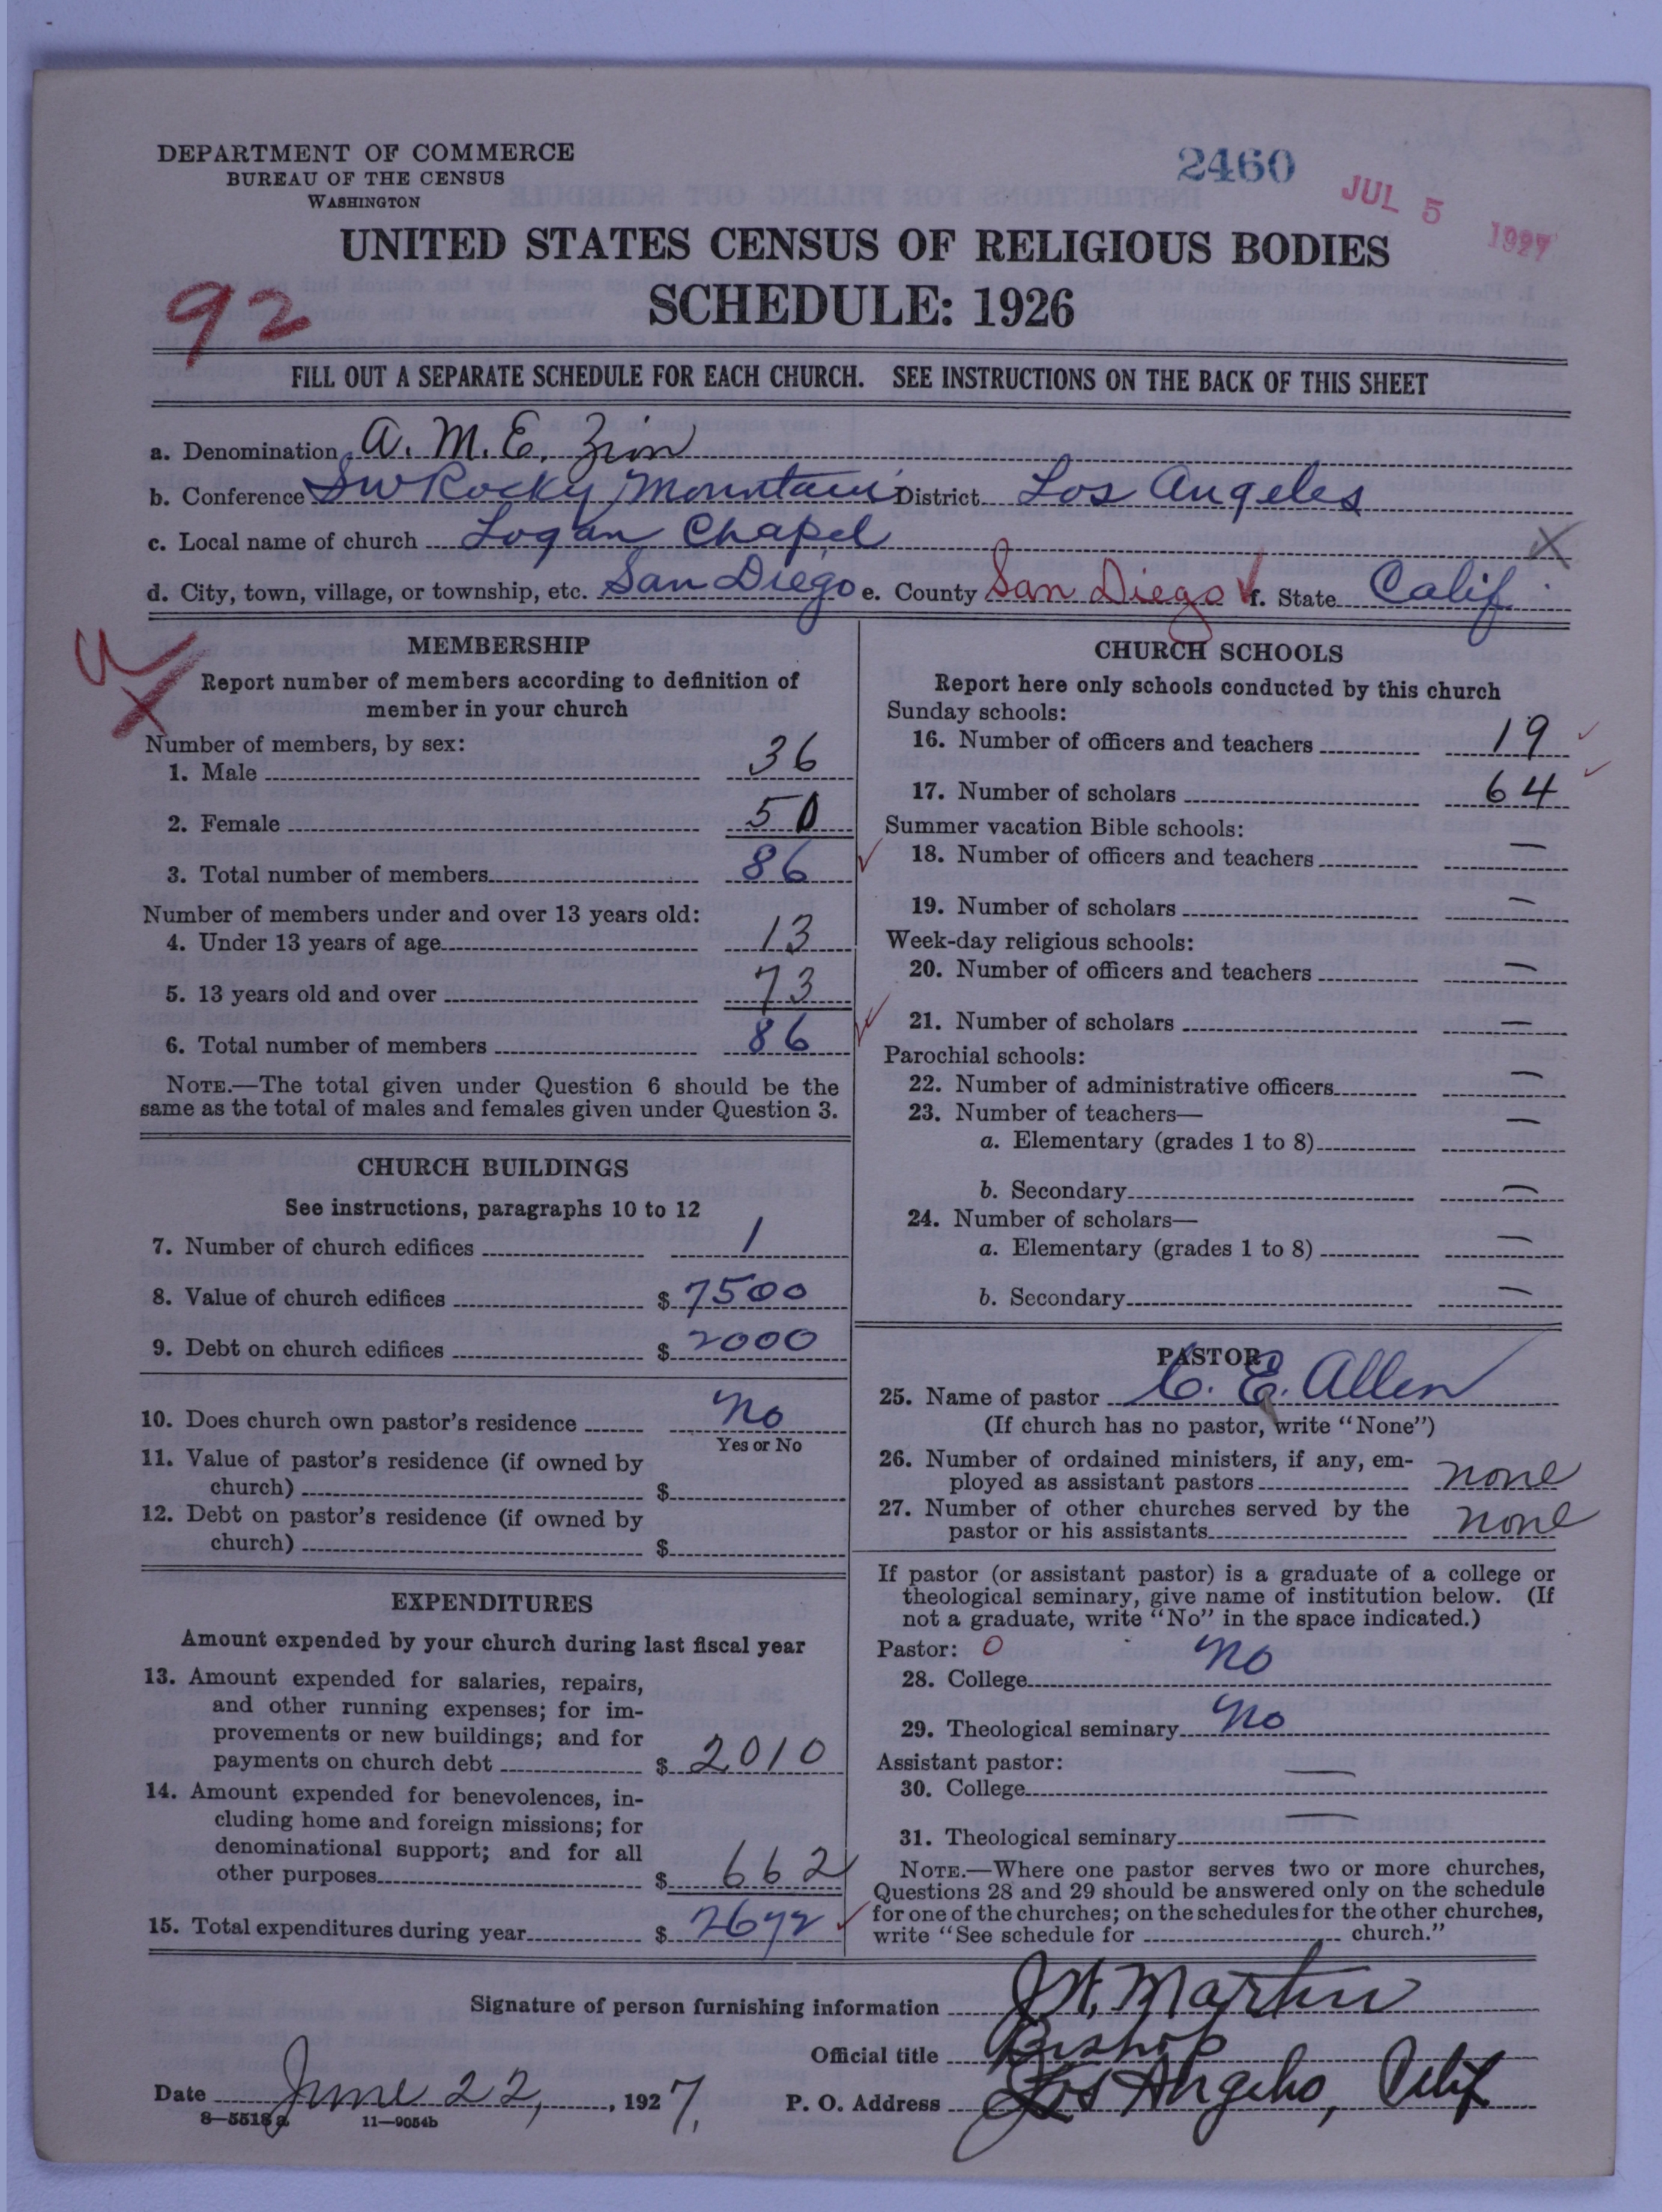 DEPARTMENT OF COMMERCE
BUREAU OF THE CENSUS
WASHINGTON
2460
JUL 5 1927
UNITED STATES CENSUS OF RELIGIOUS BODIES
SCHEDULE: 1926
92
FILL OUT A SEPARATE SCHEDULE FOR EACH CHURCH. SEE INSTRUCTIONS ON THE BACK OF THIS SHEET
a. Denomination A. M. E. Zion
b. Conference SW Rocky Mountain District Los Angeles
c. Local name of church Logan Chapel X
d. City, town, village, or township, etc. San Diego e. County San Diego f. State Calif
MEMBERSHIP
Report number of members according to definition of
member in your church
Number of members, by sex:
1. Male 36
2. Female 50
3. Total number of members 86
Number of members under and over 13 years old:
4. Under 13 years of age 13
5. 13 years old and over 73
6. Total number of members 86
NOTE.—The total given under Question 6 should be the
same as the total of males and females given under Question 3.
CHURCH BUILDINGS
See instructions, paragraphs 10 to 12
7. Number of church edifices 1
8. Value of church edifices $ 7500
9. Debt on church edifices $ 2000
10. Does church own pastor's residence No
Yes or No
11. Value of pastor's residence (if owned by
church) $
12. Debt on pastor's residence (if owned by
church) $
EXPENDITURES
Amount expended by your church during last fiscal year
13. Amount expended for salaries, repairs,
and other running expenses; for im-
provements or new buildings; and for
payments on church debt $ 2010
14. Amount expended for benevolences, in-
cluding home and foreign missions; for
denominational support; and for all
other purposes $ 662
15. Total expenditures during year $ 2672
CHURCH SCHOOLS
Report here only schools conducted by this church
Sunday schools:
16. Number of officers and teachers 19
17. Number of scholars 64
Summer vacation Bible schools:
18. Number of officers and teachers —
19. Number of scholars —
Week-day religious schools:
20. Number of officers and teachers —
21. Number of scholars —
Parochial schools:
22. Number of administrative officers —
23. Number of teachers—
a. Elementary (grades 1 to 8) —
b. Secondary —
24. Number of scholars—
a. Elementary (grades 1 to 8) —
b. Secondary —
PASTOR
25. Name of pastor C. E. Allen
(If church has no pastor, write "None")
26. Number of ordained ministers, if any, em-
ployed as assistant pastors none
27. Number of other churches served by the
pastor or his assistants none
If pastor (or assistant pastor) is a graduate of a college or
theological seminary, give name of institution below. (If
not a graduate, write "No" in the space indicated.)
Pastor: 0
28. College No
29. Theological seminary No
Assistant pastor:
30. College —
31. Theological seminary —
NOTE.—Where one pastor serves two or more churches,
Questions 28 and 29 should be answered only on the schedule
for one of the churches; on the schedules for the other churches,
write "See schedule for church."
Signature of person furnishing information J. W. Martin
Official title Bishop
Date June 22, 1927, P. O. Address Los Angeles, Calif
8—5518 a 11—9054b